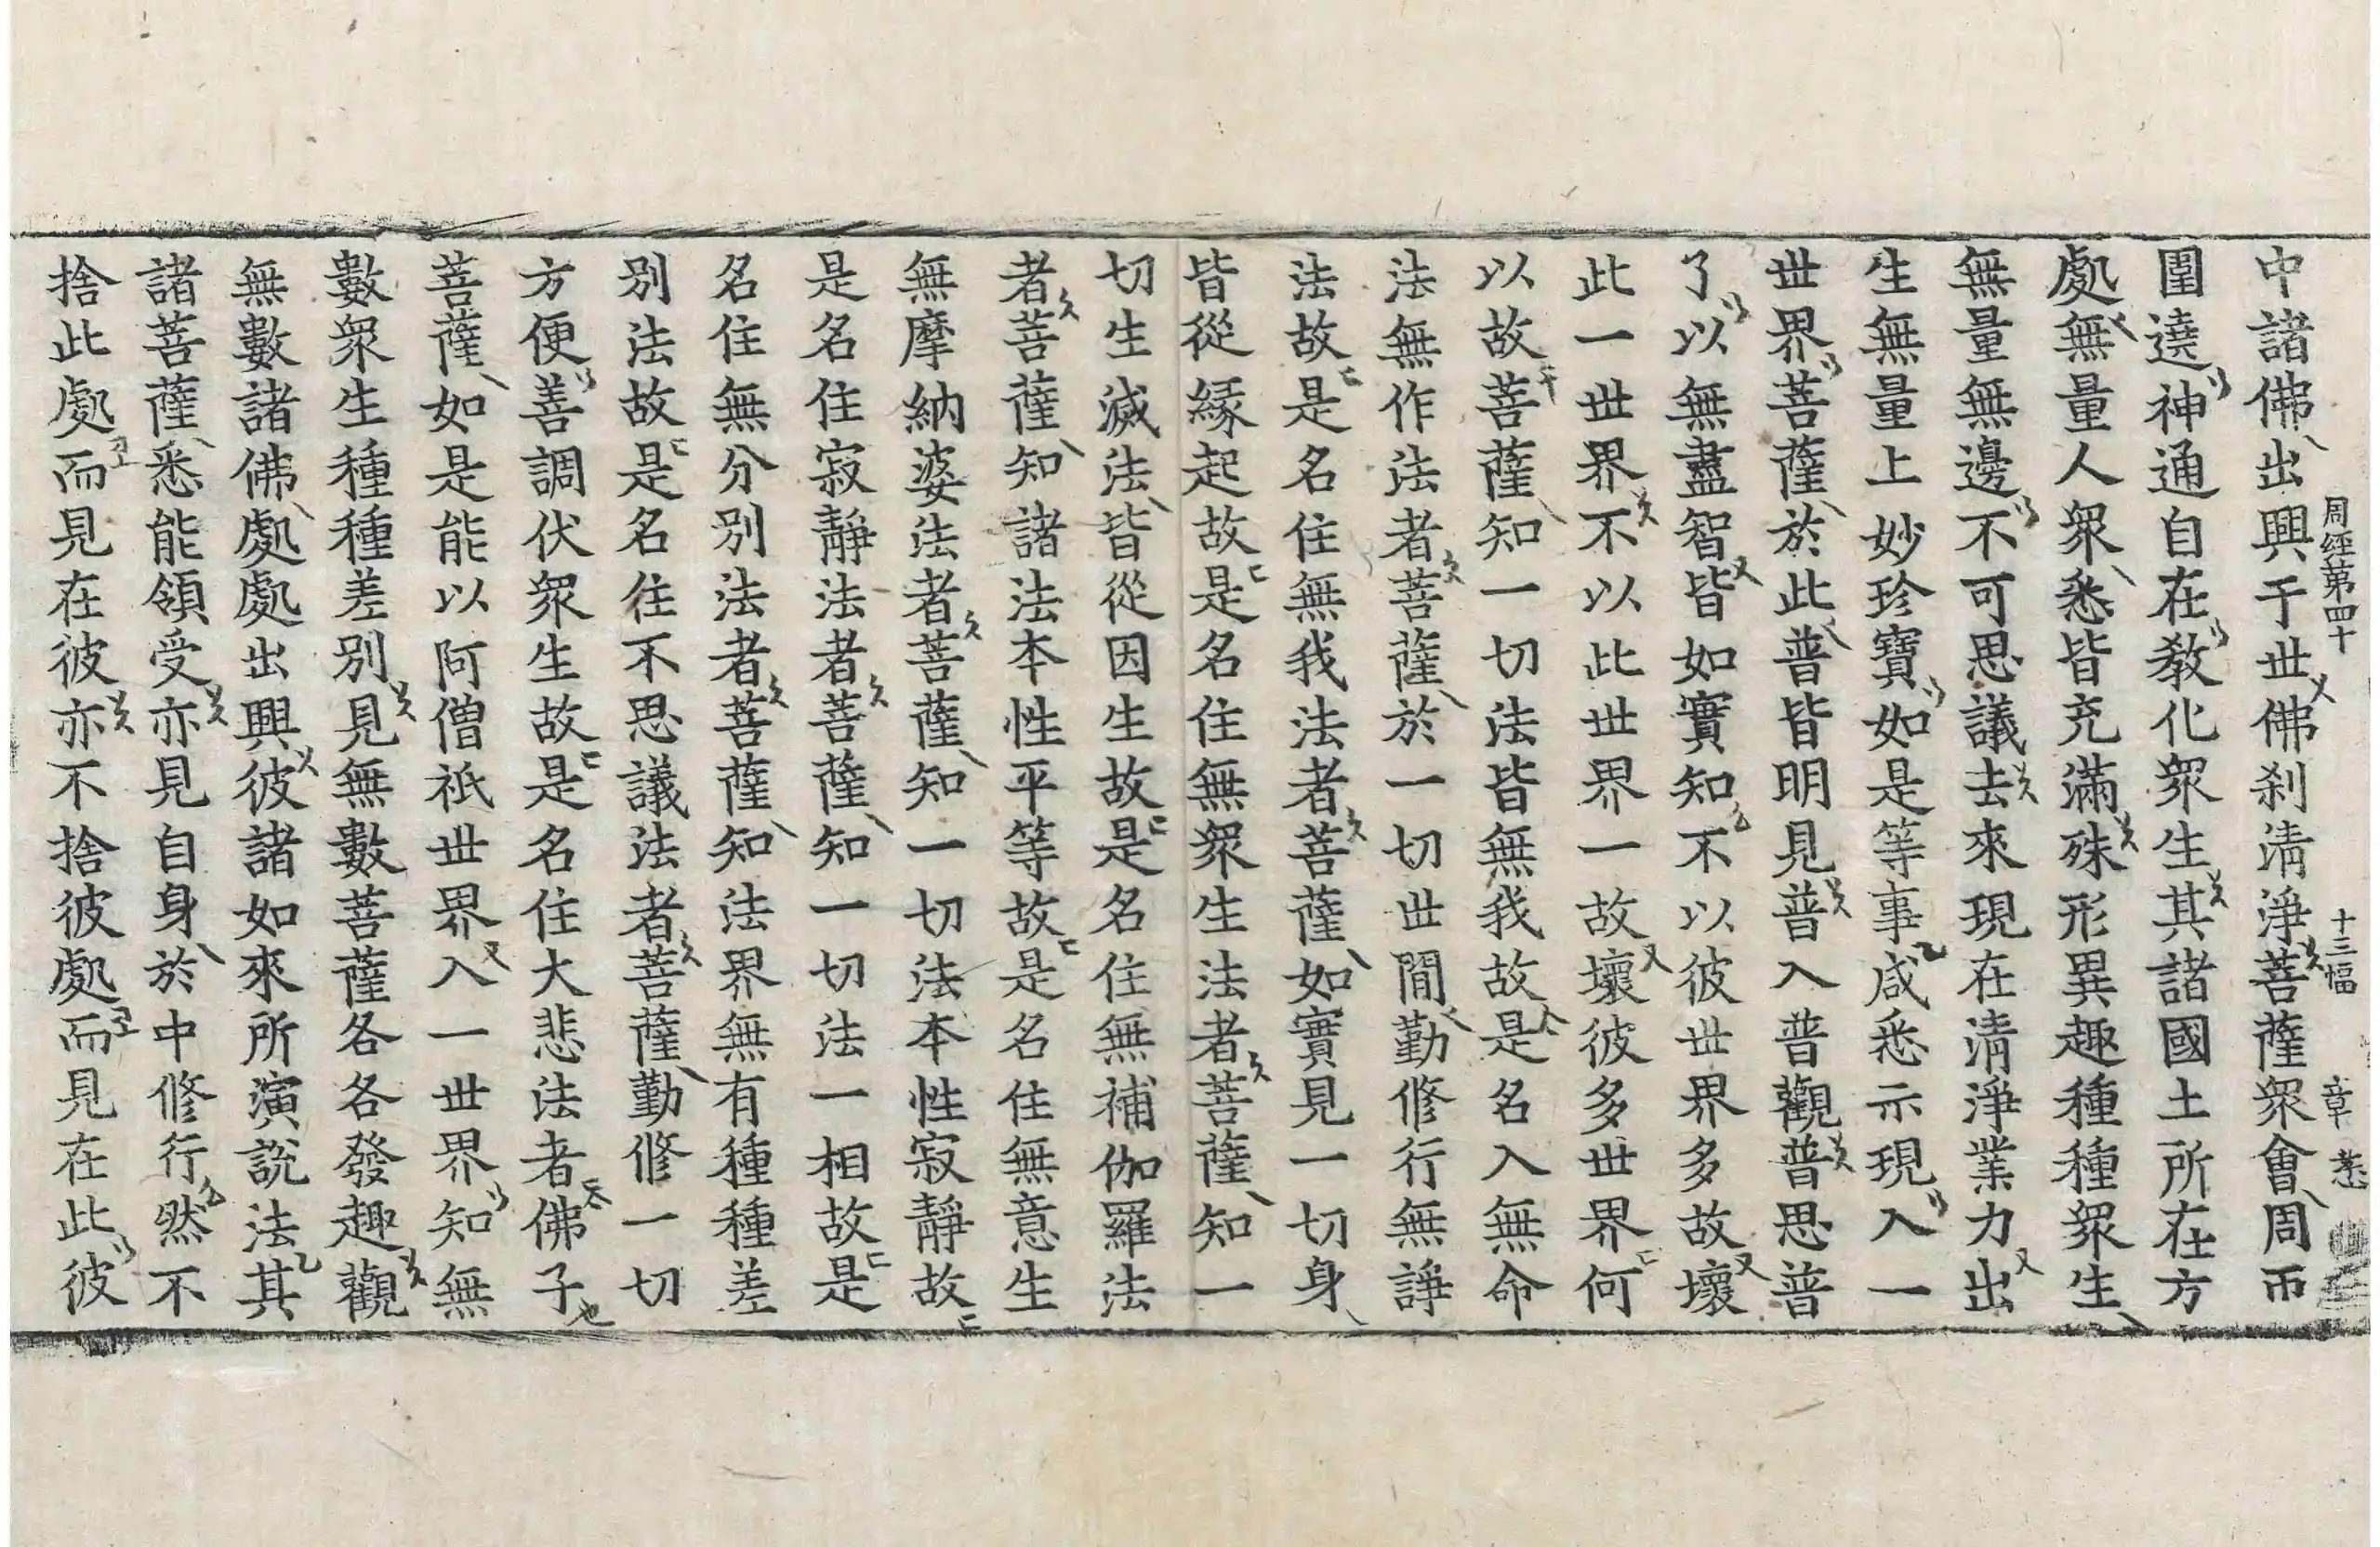 周經第四十 十三幅 章 㤅
中諸佛出興于世佛刹清淨菩薩衆會周帀
圍遶神通自在教化衆生其諸國土所在方
處無量人衆悉皆充滿殊形異趣種種衆生
無量無邊不可思議去來現在清淨業力出
生無量上妙珍寶如是等事咸悉示現入一
世界菩薩於此普皆明見普入普觀普思普
了以無盡智皆如實知不以彼世界多故壞
此一世界不以此世界一故壞彼多世界何
以故菩薩知一切法皆無我故是名入無命
法無作法者菩薩於一切世間勤修行無諍
法故是名住無我法者菩薩如實見一切身
皆從緣起故是名住無衆生法者菩薩知一
切生滅法皆從因生故是名住無補伽羅法
者菩薩知諸法本性平等故是名住無意生
無摩納婆法者菩薩知一切法本性寂靜故
是名住寂靜法者菩薩知一切法一相故是
名住無分別法者菩薩知法界無有種種差
別法故是名住不思議法者菩薩勤修一切
方便善調伏衆生故是名住大悲法者佛子
菩薩如是能以阿僧祇世界入一世界知無
數衆生種種差別見無數菩薩各各發趣觀
無數諸佛處處出興彼諸如來所演說法其
諸菩薩悉能領受亦見自身於中修行然不
捨此處而見在彼亦不捨彼處而見在此彼